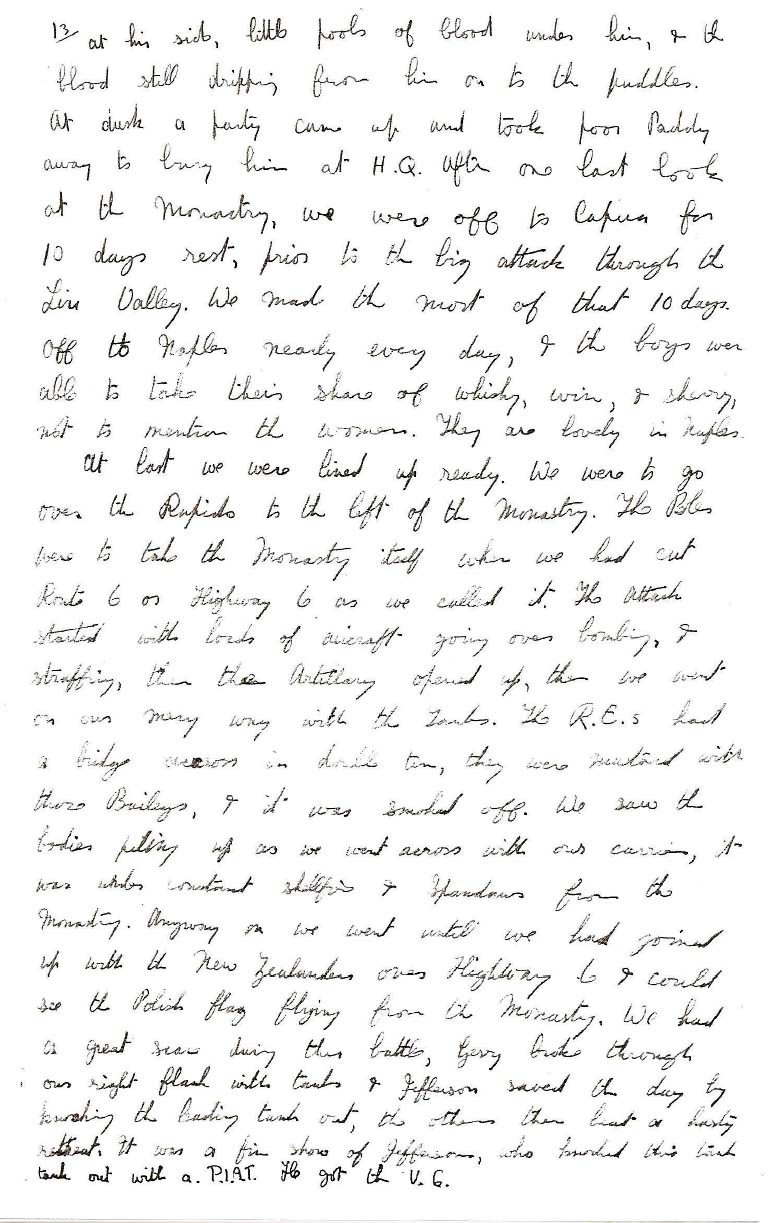 13/ at his side, little pools of blood under him, & the
blood still dripping from him on to the puddles.
At dusk a party came up and took poor Paddy
away to bury him at H.Q. After one last look
at the Monastry, we were off to Capua for
10 days rest, prior to the big attack through the
Liri Valley. We made the most of that 10 days.
Off to Naples nearly every day, & the boys were
able to take their share of whisky, wine, & sherry,
not to mention the women. They are lovely in Naples.
At last we were lined up ready. We were to go
over the Rapido to the left of the Monastry. The Poles
were to take the Monasty itself when we had cut
Route 6 or Highway 6 as we called it. The Attack
started with loads of aircraft going over bombing, &
straffing, then the Artillary opened up, then we went
on our merry way with the Tanks. The R.E.s had
a bridge across in double ten, they were mustard with
those Baileys, & it was smoked off. We saw the
bodies piling up as we went across with our carrier, it
was under constant shellfire & Spandaus from the
Monastry. Anyway on we went until we had joined
up with the New Zealanders over Highway 6 & could
see the Polish flag flying from the Monasty. We had
a great scare during this battle, Gerry broke through
our right flank with tanks & Jefferson saved the day by
knocking the leading tank out, the others then beat a hasty
retreat. It was a fine show of Jeffersons, who knocked this tank
tank out with a P.I.A.T. He got the V.C.